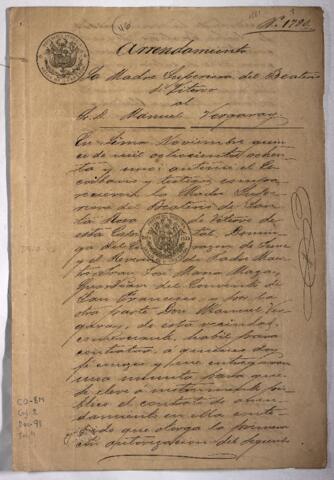 116
1881
Nº 1780.
Arrendamiento
La Madre Superiora del Beaterio
de Viterbo
al
S. D. Manuel Vergaray
En Lima Noviembre quin
ce de mil ochocientos ochen
ta y uno: ante mi el Es
cribano y testigos
la Madre Supe
riora del Beaterio de San
ta Rosa de Viterbo de
esta Capital, Domin
ga del
y el Reverendo Padre Maes
tro Fray José Maria
Guardian del Convento de
San Francisco, y por la
otra parte Don Manuel Ver
garay, de esta vecindad,
comerciante, habil para
contratar, á quienes doy
fé conozco y me entregaron
una minuta para que
se eleve á instrumento pú
blico el contrato de arren
damiento en ella conte
nido que otorga la primera
con autorizacion del segundo
CO-BM
Cj. 2
Doc. 91